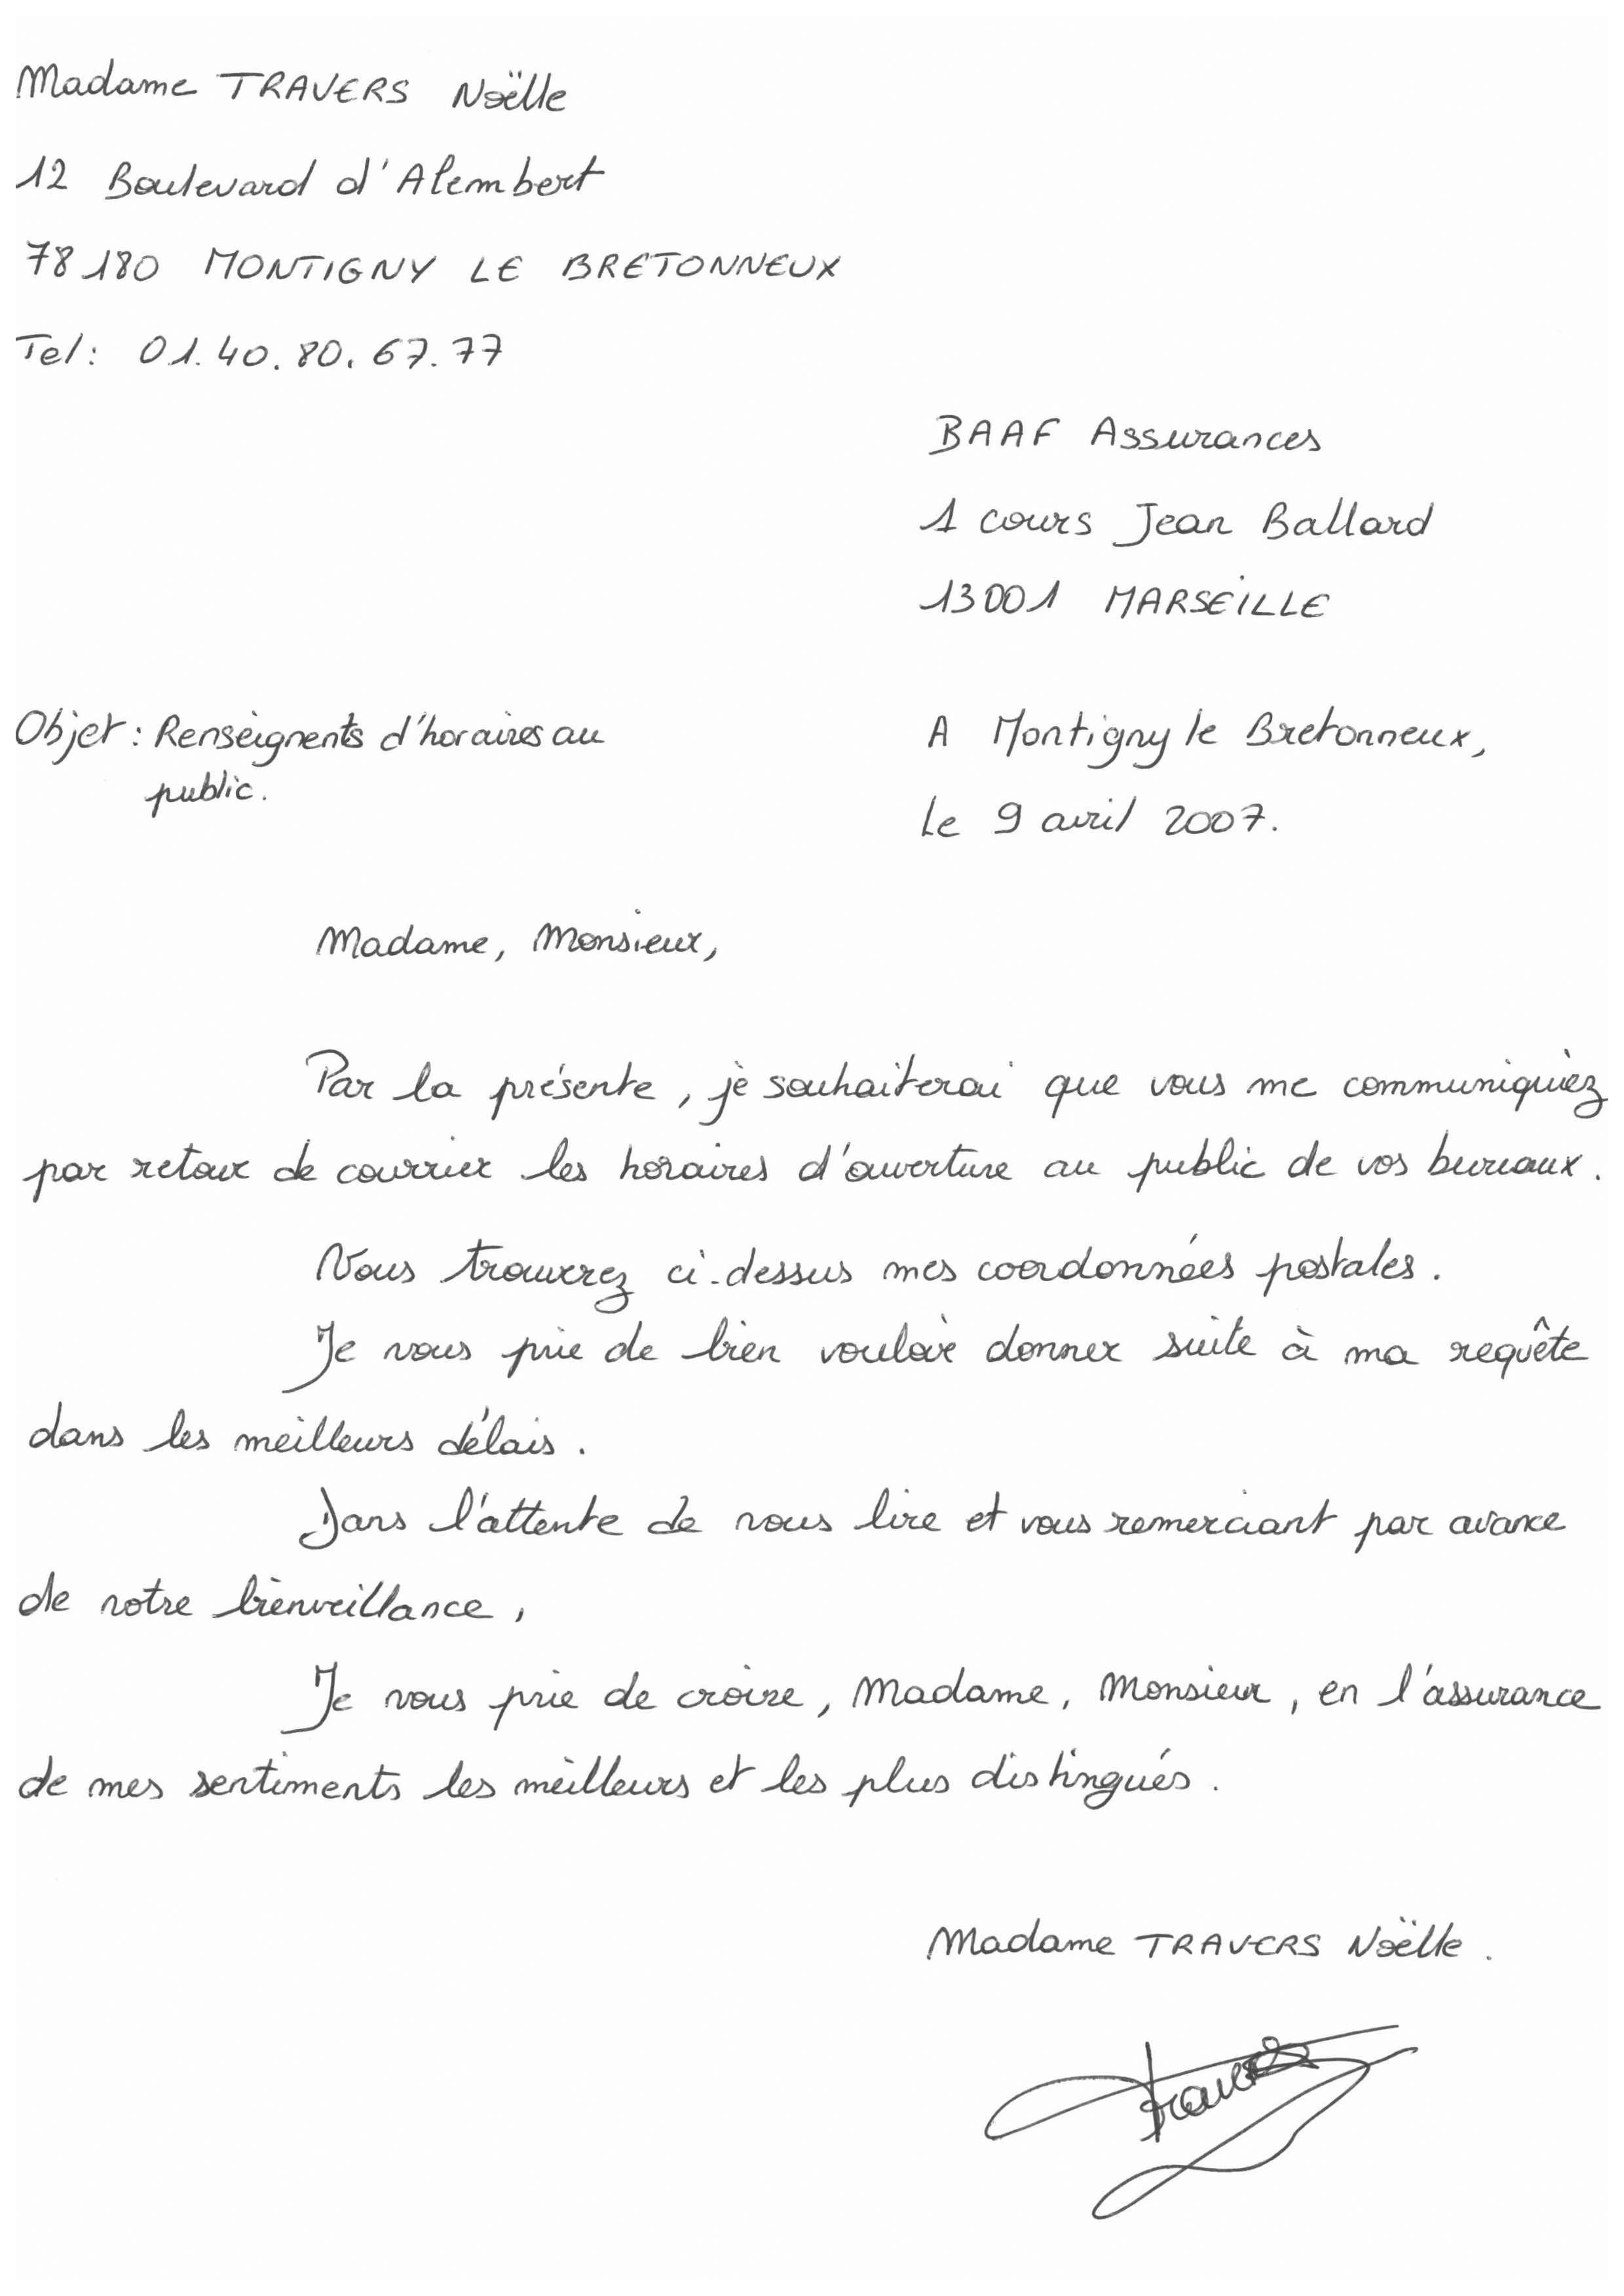 Madame TRAVERS Noëlle
12 Boulevard d'Alembert
78180 MONTIGNY LE BRETONNEUX
Tel: 01.40.80.67.77
BAAF Assurances
1 cours Jean Ballard
13001 MARSEILLE
Objet: Renseignents d'horaires au
public.
A Montigny le Bretonneux,
Le 9 avril 2007.
Madame, Monsieur,
Par la présente, je souhaiterai que vous me communiquiez
par retour de courrier les horaires d'ouverture au public de vos bureaux.
Vous trouverez ci-dessus mes coordonnées postales.
Je vous prie de bien vouloir donner suite à ma requête
dans les meilleurs délais.
Dans l'attente de vous lire et vous remerciant par avance
de votre bienveillance,
Je vous prie de croire, Madame, Monsieur, en l'assurance
de mes sentiments les meilleurs et les plus distingués.
Madame TRAVERS Noëlle.
Travers